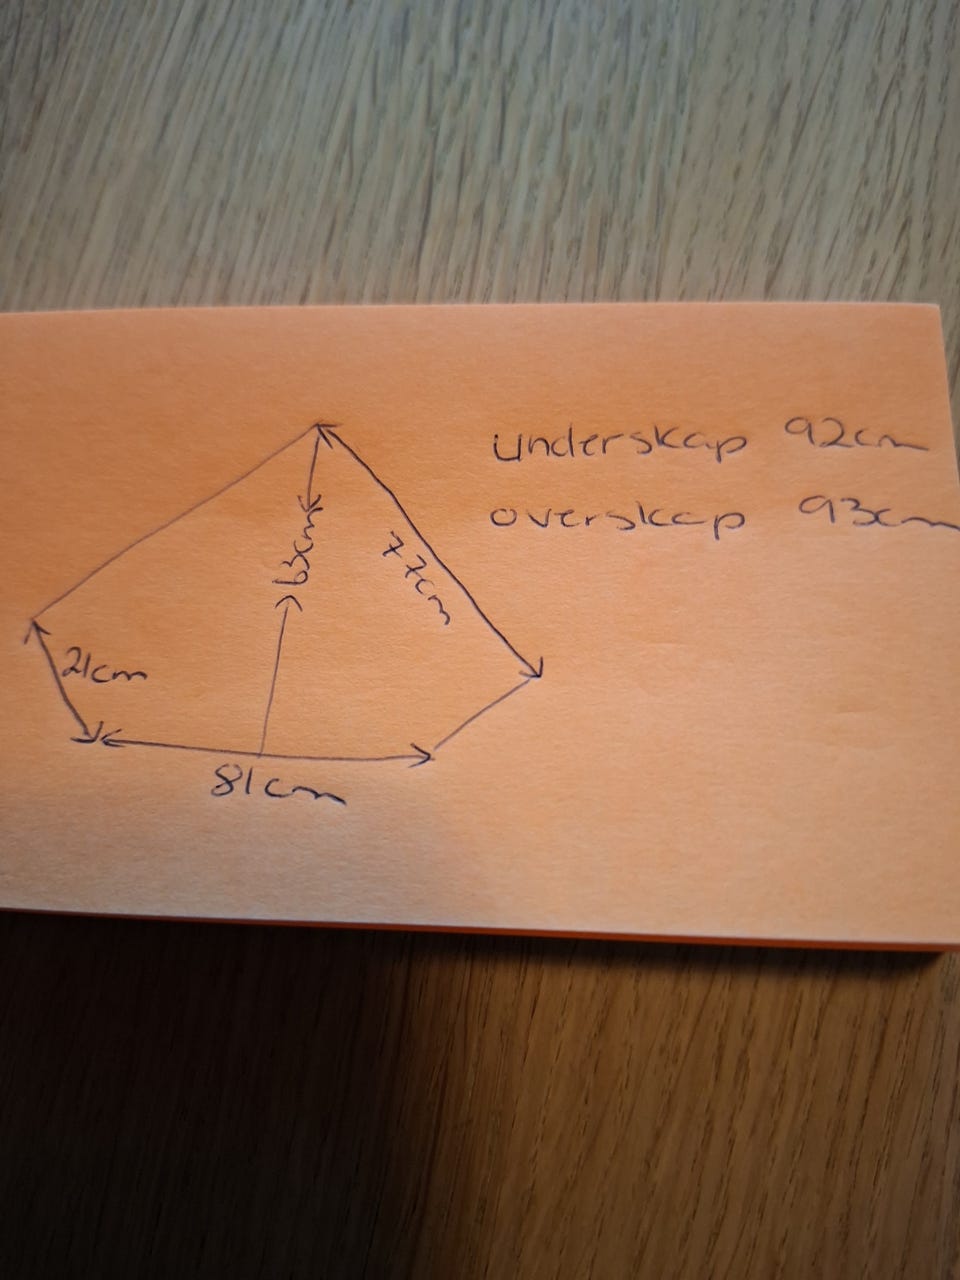 underskap 92cm
overskap 93cm
63cm
77cm
21cm
81cm